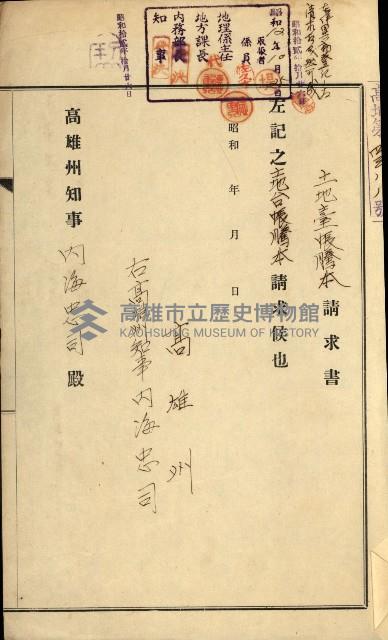 土地臺帳謄本請求書
左記之土地台帳謄本請求候也
昭和 年 月 日
高雄州
右高雄州知事内海忠司
高雄州知事 内海忠司 殿
昭和12年10月
取扱者
係員
地理係主任
地方課長
内務部長
知事
昭和拾貳年拾月廿六日
高雄市立歷史博物館
KAOHSIUNG MUSEUM OF HISTORY